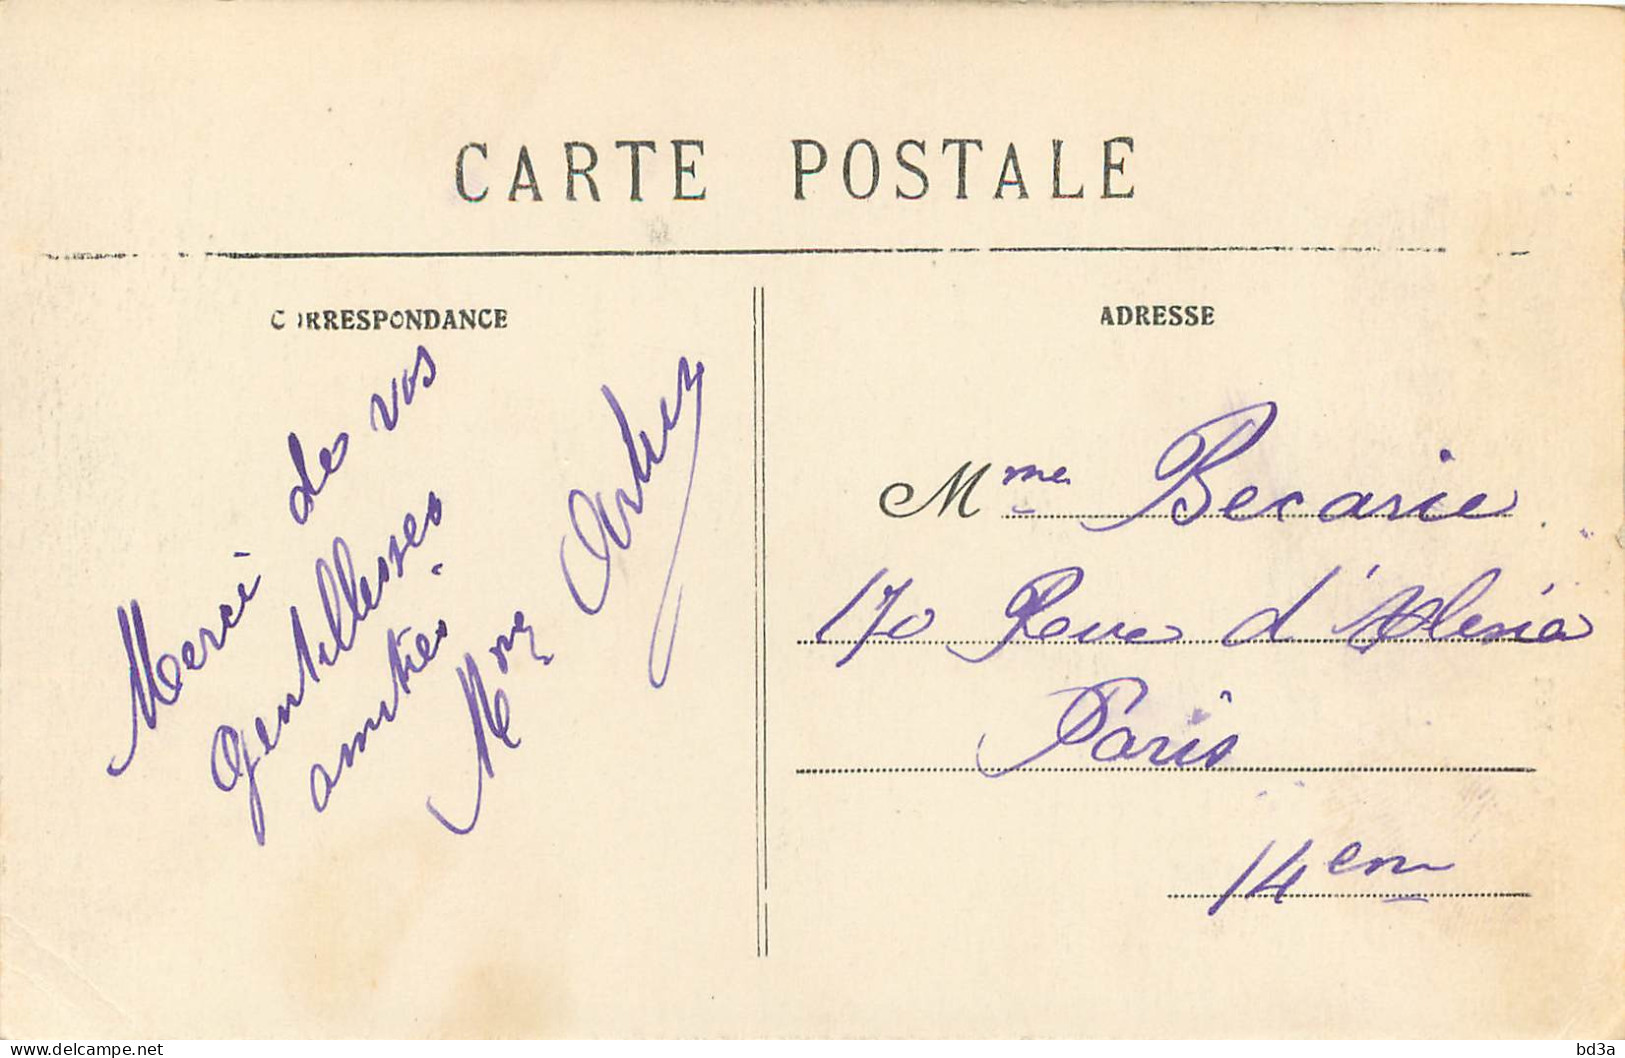 CARTE POSTALE
CORRESPONDANCE
Merci de vos
gentillesses
amitiés
Mme
ADRESSE
Mme Becarie
170 Rue d'Alesia
Paris
14em
delcampe.net
bd3a